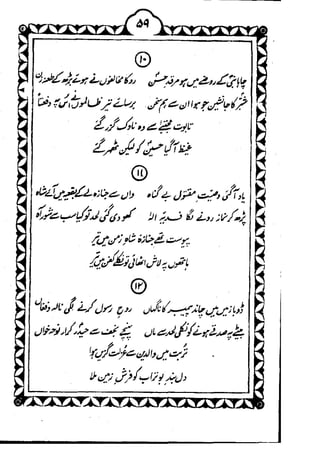 ۵۹
۱۰
چاہا نبی کے روضے میں ہو مرقدِ حسن روکا مخالفوں نے ہوئے بڑھ کے طعنہ زن
شبر کا جانشین جو ہوا ان سے ہم سخن برسائے تیر ظالموں نے دفعتاً
تابوت مجتبےٰ سے وہ ناوک گزر گئے
غیظ آ گیا حسین کو لیکن ٹھہر گئے
۱۱
یاد آ گئی وصیتِ مقتول بے گناہ واں سے جنازہ لے کے بقیعہ میں آئے شاہ
پڑھ کر نماز رونے لگا فدیہ الٰہ کھودی گئی لحد تو کیا سب نے شور آہ
پیوست تھے جنازۂ شاہِ زمن میں تیر
ہاتھوں پہ لاش اٹھائی تو نکلے کفن میں تیر
۱۲
ڈوبا زمیں میں چاند پیمبر کا ناگہاں روح رسول کرنے لگی نالہ و فغاں
بیٹے پہ صدقے ہونے کو نکلی لحد سے ماں پہنچے نجف سے حیدر کرار نوحہ خواں
تربت میں والدین سے عزلت گزیں ہوا
دل بند بوتراب کو فرشِ زمین ملا